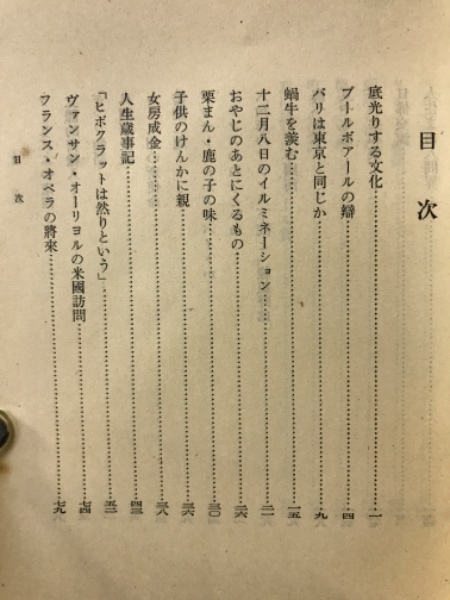 目次
底光りする文化……一
プールボアールの辯……四
パリは東京と同じか……九
蝸牛を羨む……一五
十二月八日のイルミネーション……二一
おやじのあとにくるもの……二六
栗まん・鹿の子の味……三〇
子供のけんかに親……三六
女房成金……三八
人生歳事記……四三
「ヒポクラットは然りという」……五二
ヴァンサン・オーリヨルの米國訪問……七四
フランス・オペラの將來……七九
目次